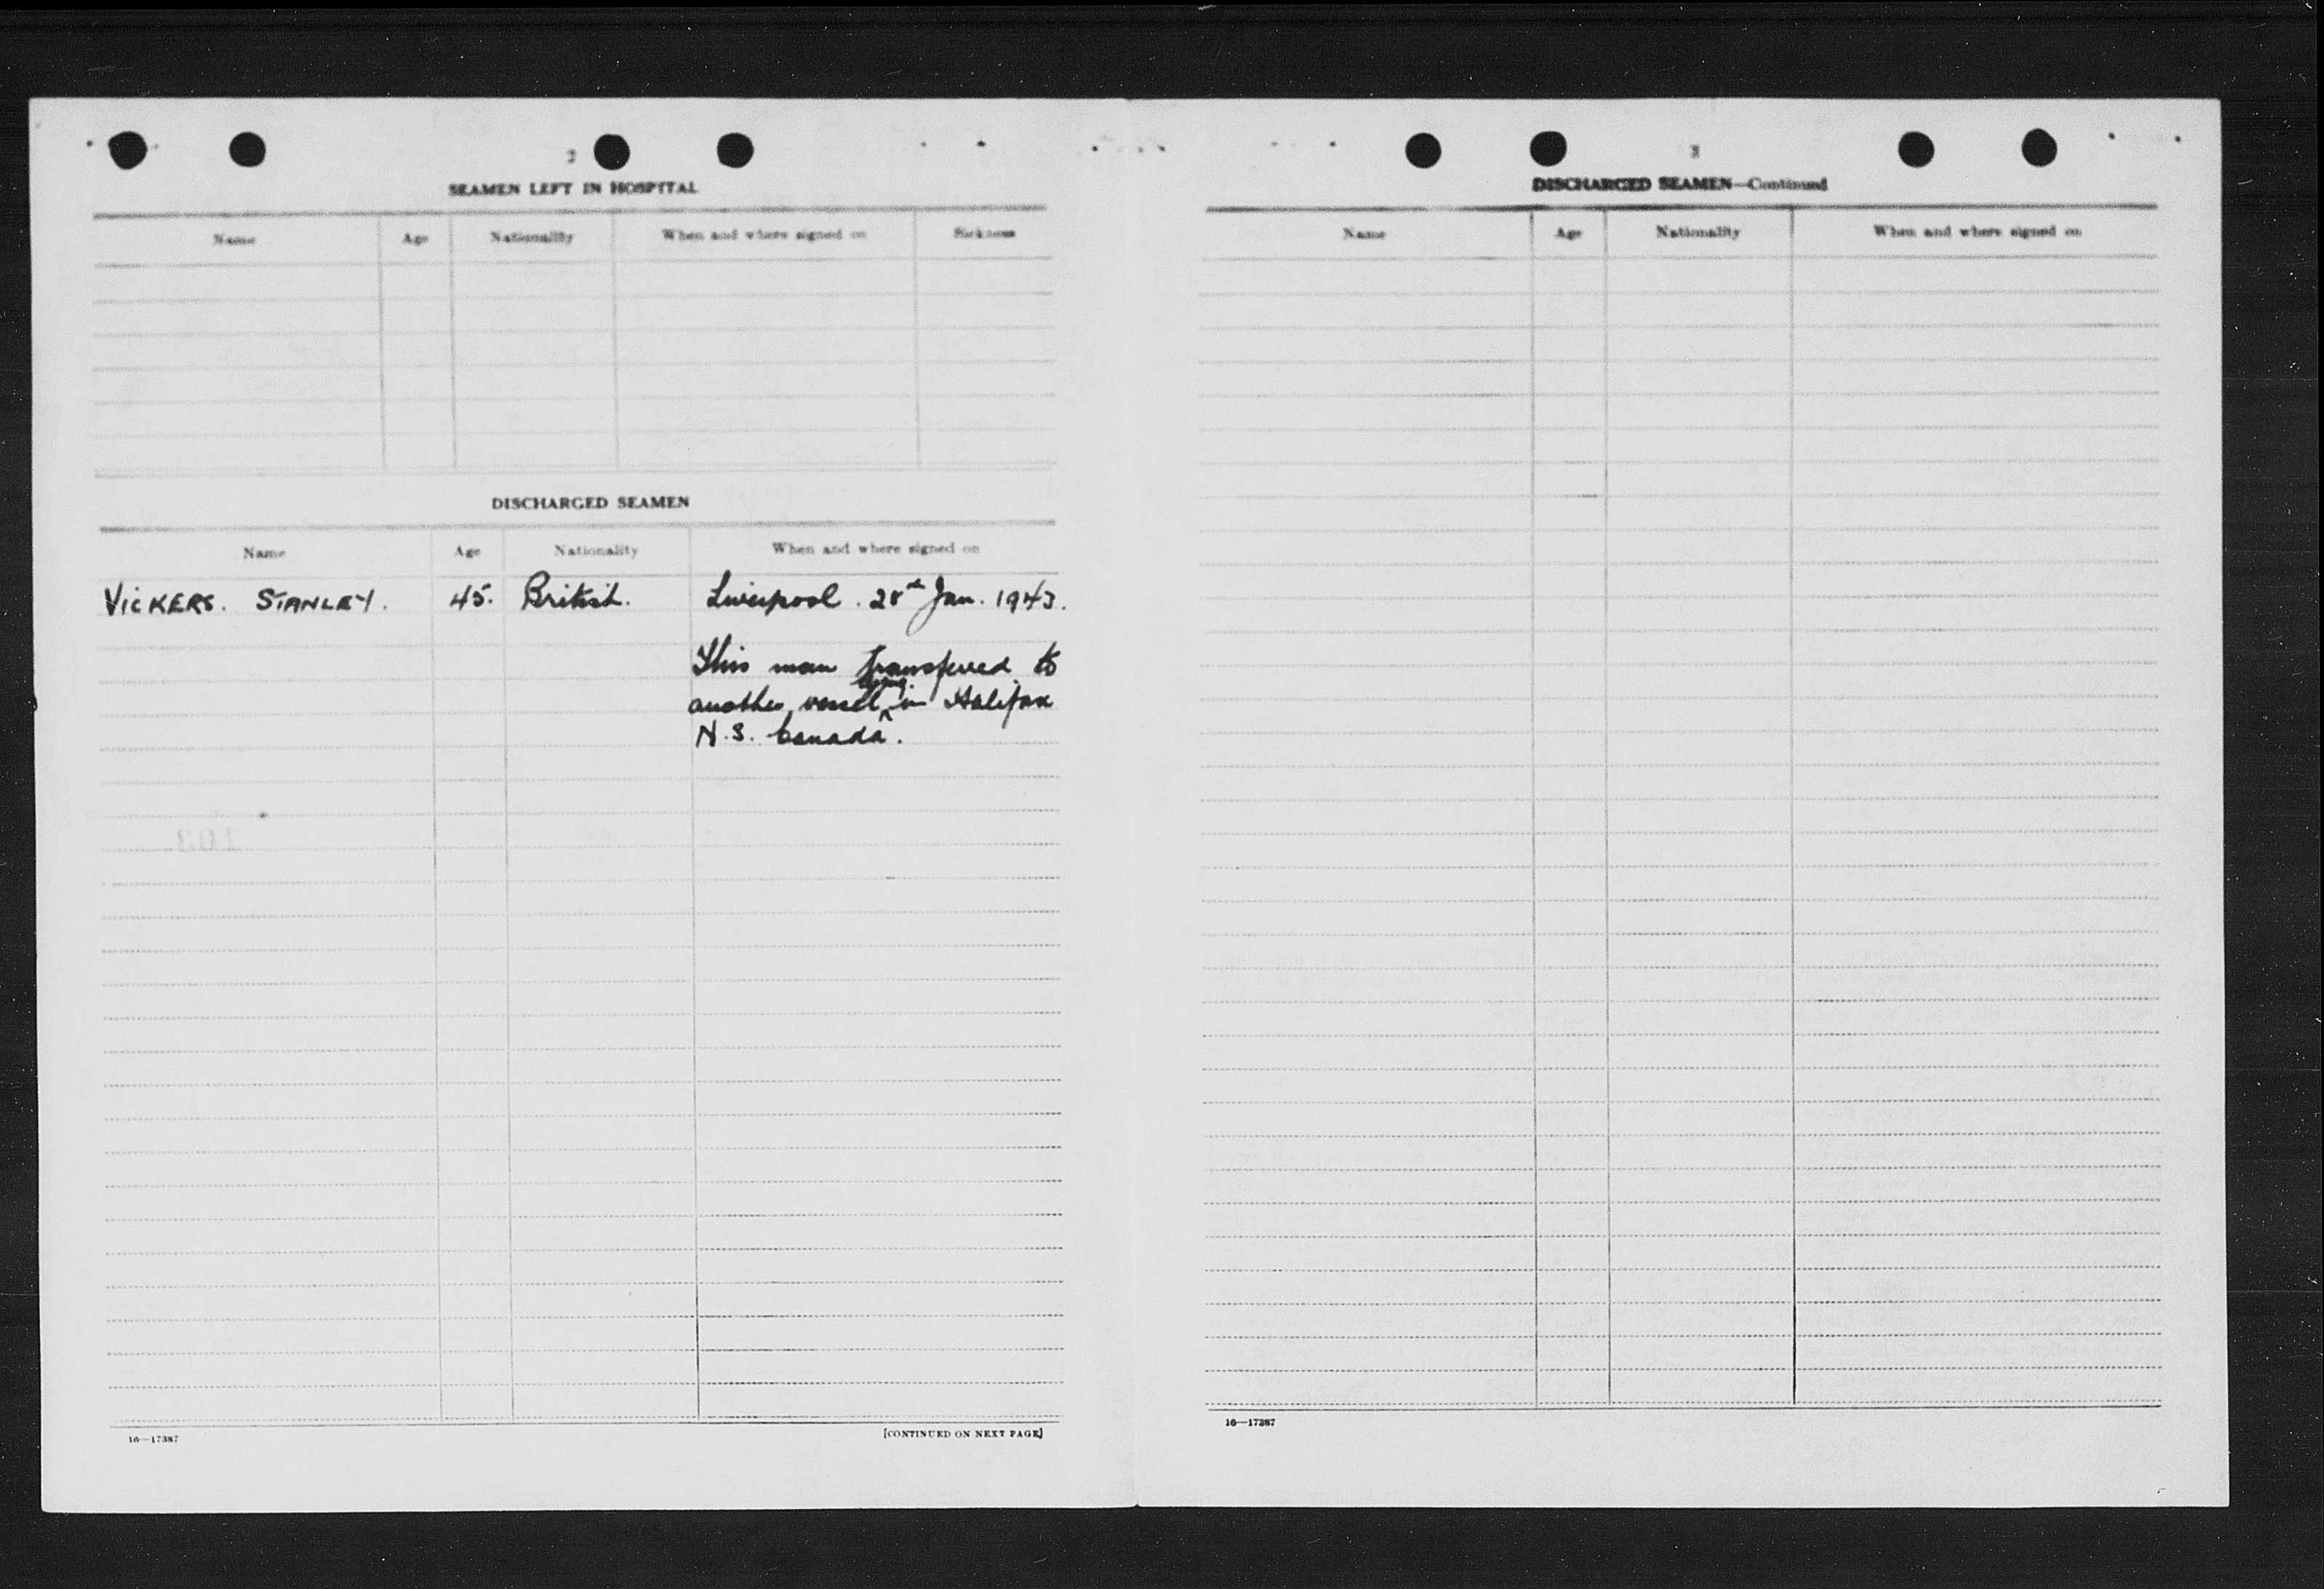 2
SEAMEN LEFT IN HOSPITAL
Name Age Nationality When and where signed on Sickness
DISCHARGED SEAMEN
Name Age Nationality When and where signed on
VICKERS. STANLEY. 45. British. Liverpool. 28th Jan. 1943.
This man transferred to
another vessel in Halifax
N.S. Canada.
16—17387 [CONTINUED ON NEXT PAGE]
3
DISCHARGED SEAMEN—Continued
Name Age Nationality When and where signed on
16—17387